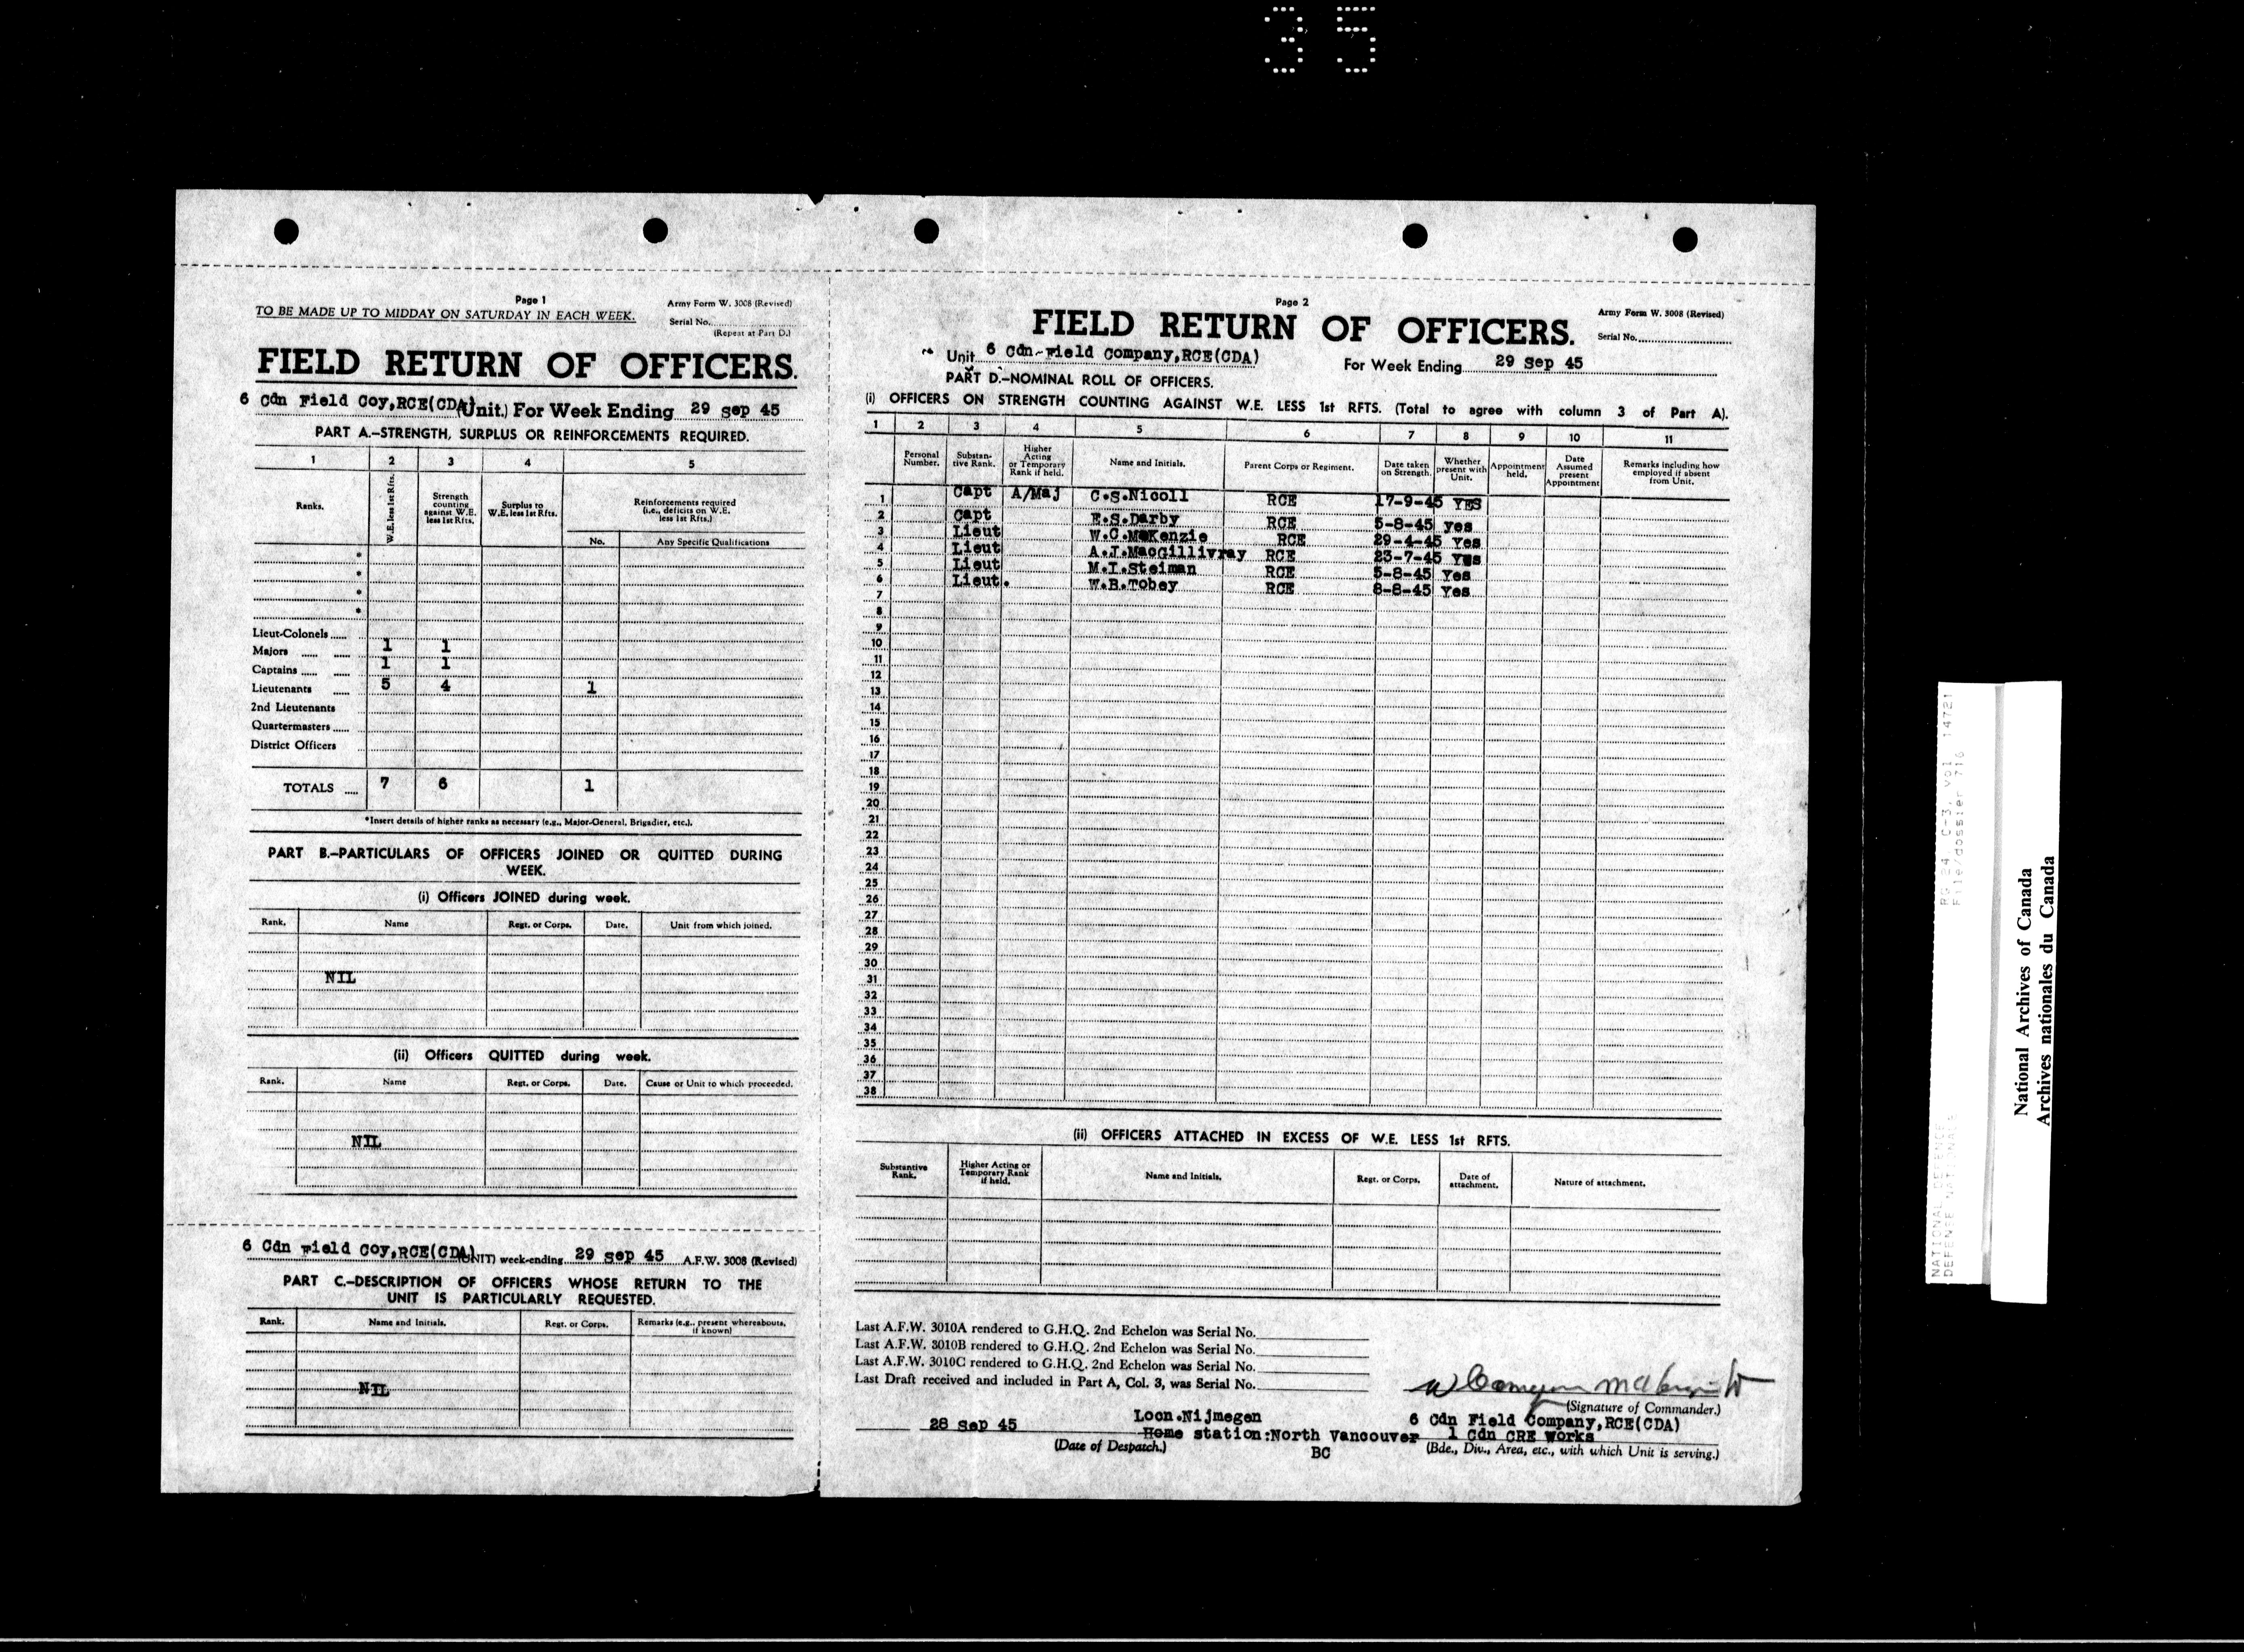 35
Page 1
TO BE MADE UP TO MIDDAY ON SATURDAY IN EACH WEEK.
Army Form W. 3008 (Revised)
Serial No.
(Repeat at Part D.)
FIELD RETURN OF OFFICERS.
6 Cdn Field Coy,RCE(CDA) (Unit.) For Week Ending 29 Sep 45
PART A.-STRENGTH, SURPLUS OR REINFORCEMENTS REQUIRED.
1 2 3 4 5
Ranks. W.E. less 1st Rfts. Strength counting against W.E. less 1st Rfts. Surplus to W.E. less 1st Rfts. Reinforcements required (i.e., deficits on W.E. less 1st Rfts.)
No. Any Specific Qualifications
*
*
*
*
Lieut-Colonels
Majors 1 1
Captains 1 1
Lieutenants 5 4 1
2nd Lieutenants
Quartermasters
District Officers
TOTALS 7 6 1
*Insert details of higher ranks as necessary (e.g., Major-General, Brigadier, etc.).
PART B.-PARTICULARS OF OFFICERS JOINED OR QUITTED DURING
WEEK.
(i) Officers JOINED during week.
Rank. Name Regt. or Corps. Date. Unit from which joined.
NIL
(ii) Officers QUITTED during week.
Rank. Name Regt. or Corps. Date. Cause or Unit to which proceeded.
NIL
6 Cdn Field Coy,RCE(CDA) (UNIT) week-ending 29 Sep 45 A.F.W. 3008 (Revised)
PART C.-DESCRIPTION OF OFFICERS WHOSE RETURN TO THE
UNIT IS PARTICULARLY REQUESTED.
Rank. Name and Initials. Regt. or Corps. Remarks (e.g., present whereabouts, if known)
NIL
Page 2
FIELD RETURN OF OFFICERS.
Army Form W. 3008 (Revised)
Serial No.
Unit 6 Cdn-Field Company,RCE(CDA) For Week Ending 29 Sep 45
PART D.-NOMINAL ROLL OF OFFICERS.
(i) OFFICERS ON STRENGTH COUNTING AGAINST W.E. LESS 1st RFTS. (Total to agree with column 3 of Part A).
1 2 3 4 5 6 7 8 9 10 11
Personal Number. Substantive Rank. Higher Acting or Temporary Rank if held. Name and Initials. Parent Corps or Regiment. Date taken on Strength. Whether present with Unit. Appointment held. Date Assumed present Appointment Remarks including how employed if absent from Unit.
1 Capt A/Maj C.S.Nicoll RCE 17-9-45 YES
2 Capt E.S.Darby RCE 5-8-45 Yes
3 Lieut W.C.McKenzie RCE 29-4-45 Yes
4 Lieut A.J.MacGillivray RCE 23-7-45 Yes
5 Lieut M.I.Steiman RCE 5-8-45 Yes
6 Lieut. W.B.Tobey RCE 8-8-45 Yes
7
8
9
10
11
12
13
14
15
16
17
18
19
20
21
22
23
24
25
26
27
28
29
30
31
32
33
34
35
36
37
38
(ii) OFFICERS ATTACHED IN EXCESS OF W.E. LESS 1st RFTS.
Substantive Rank. Higher Acting or Temporary Rank if held. Name and Initials. Regt. or Corps. Date of attachment. Nature of attachment.
Last A.F.W. 3010A rendered to G.H.Q. 2nd Echelon was Serial No.
Last A.F.W. 3010B rendered to G.H.Q. 2nd Echelon was Serial No.
Last A.F.W. 3010C rendered to G.H.Q. 2nd Echelon was Serial No.
Last Draft received and included in Part A, Col. 3, was Serial No.
(Signature of Commander.)
28 Sep 45 Locn.Nijmegen 6 Cdn Field Company,RCE(CDA)
Home station:North Vancouver 1 Cdn CRE Works
(Date of Despatch.) BC (Bde., Div., Area, etc., with which Unit is serving.)
NATIONAL DEFENCE RG 24 C-3, vol 14721
DEFENSE NATIONALE File/dossier 716
National Archives of Canada
Archives nationales du Canada